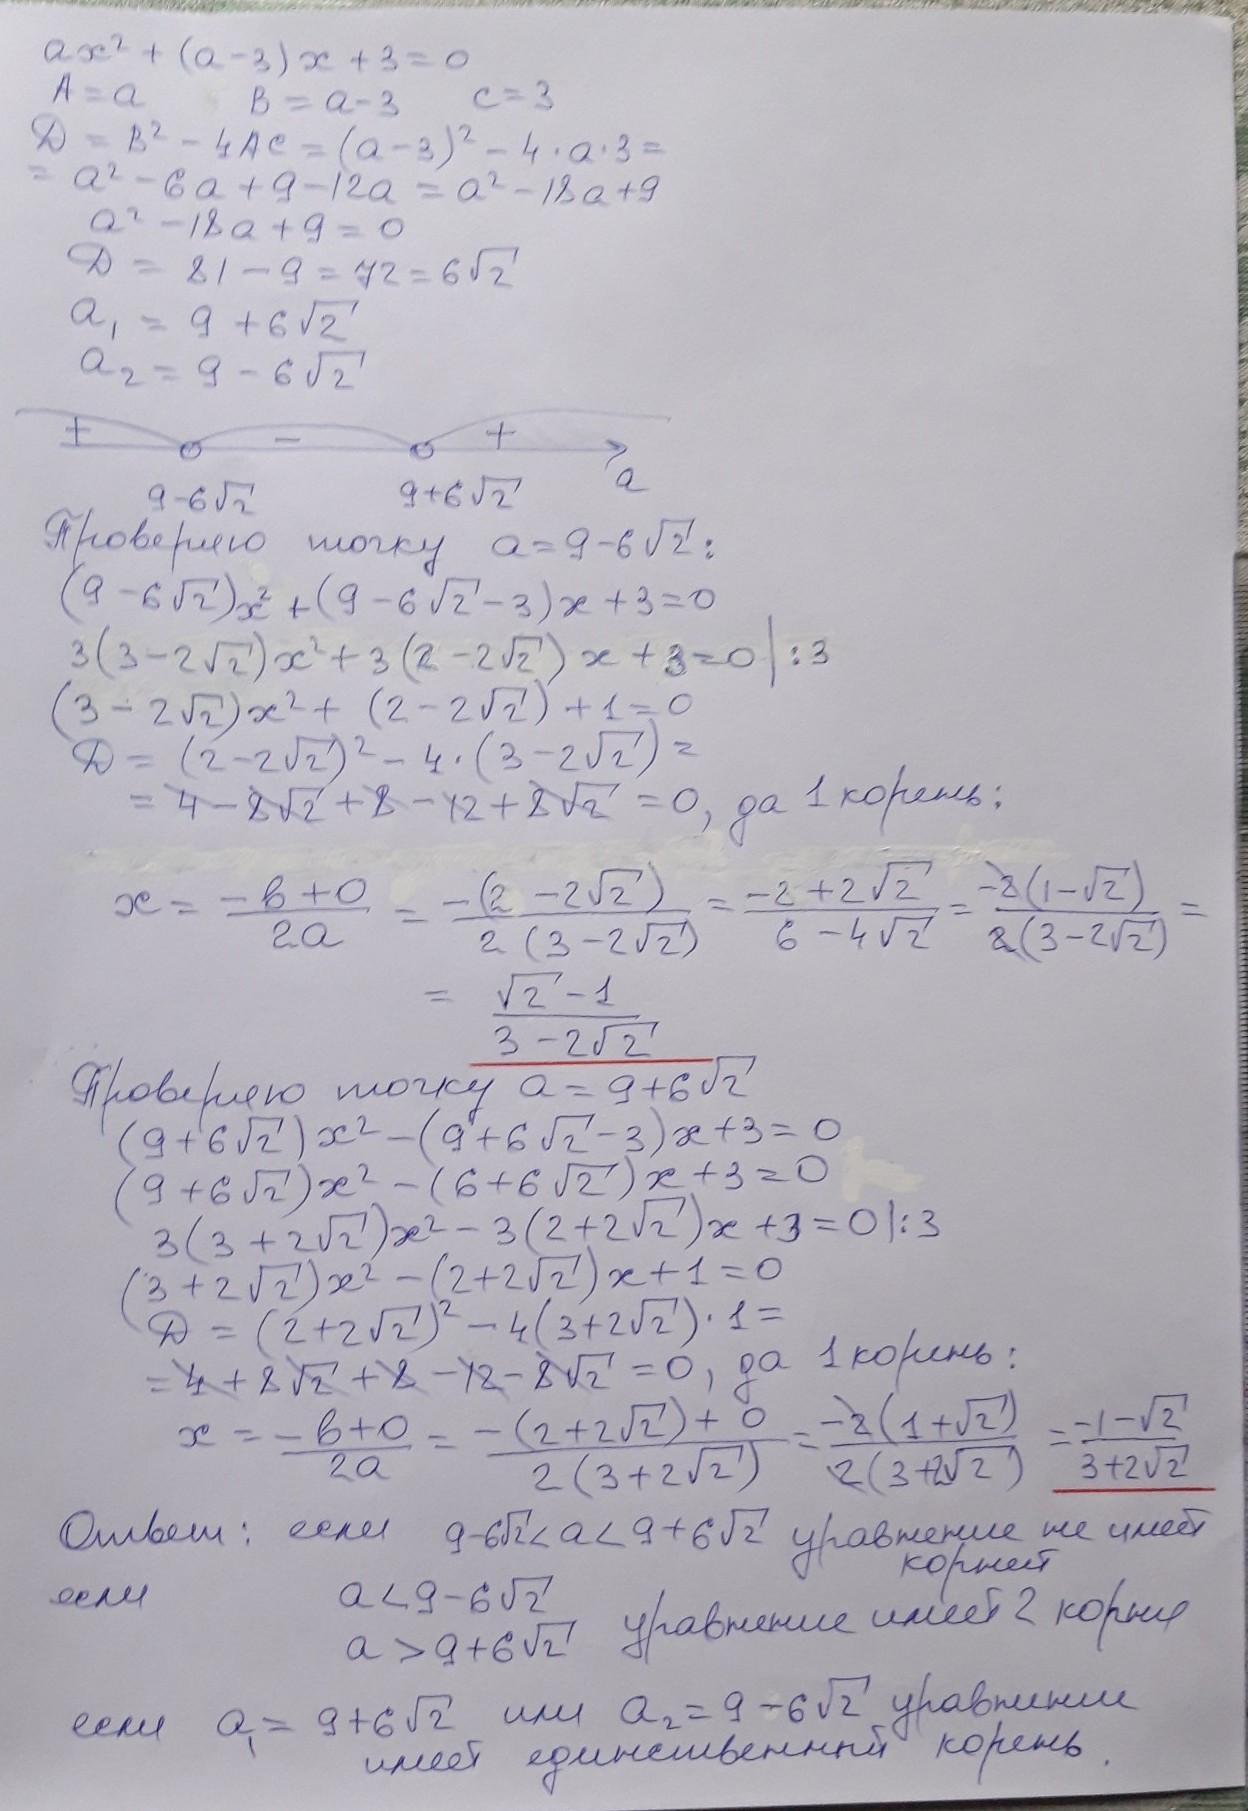 ax² + (a-3)x + 3 = 0
A = a B = a-3 c = 3
D = B² - 4AC = (a-3)² - 4·a·3 =
= a² - 6a + 9 - 12a = a² - 18a + 9
a² - 18a + 9 = 0
D = 81 - 9 = 72 = 6√2
a₁ = 9 + 6√2
a₂ = 9 - 6√2
+ - +
9-6√2 9+6√2 a
Проверяю точку a = 9-6√2:
(9-6√2)x² + (9-6√2-3)x + 3 = 0
3(3-2√2)x² + 3(2-2√2)x + 3 = 0 |:3
(3-2√2)x² + (2-2√2) + 1 = 0
D = (2-2√2)² - 4·(3-2√2) =
= 4 - 8√2 + 8 - 12 + 8√2 = 0, да 1 корень:
x = (-b+0)/(2a) = (-(2-2√2))/(2(3-2√2)) = (-2+2√2)/(6-4√2) = (-2(1-√2))/(2(3-2√2)) =
= (√2-1)/(3-2√2)
Проверяю точку a = 9+6√2
(9+6√2)x² - (9+6√2-3)x + 3 = 0
(9+6√2)x² - (6+6√2)x + 3 = 0
3(3+2√2)x² - 3(2+2√2)x + 3 = 0 |:3
(3+2√2)x² - (2+2√2)x + 1 = 0
D = (2+2√2)² - 4(3+2√2)·1 =
= 4 + 8√2 + 8 - 12 - 8√2 = 0, да 1 корень:
x = (-b+0)/(2a) = (-(2+2√2)+0)/(2(3+2√2)) = (-2(1+√2))/(2(3+2√2)) = (-1-√2)/(3+2√2)
Ответ: если 9-6√2 < a < 9+6√2 уравнение не имеет
корней
если a < 9-6√2
a > 9+6√2 уравнение имеет 2 корня
если a₁ = 9+6√2 или a₂ = 9-6√2 уравнение
имеет единственный корень.